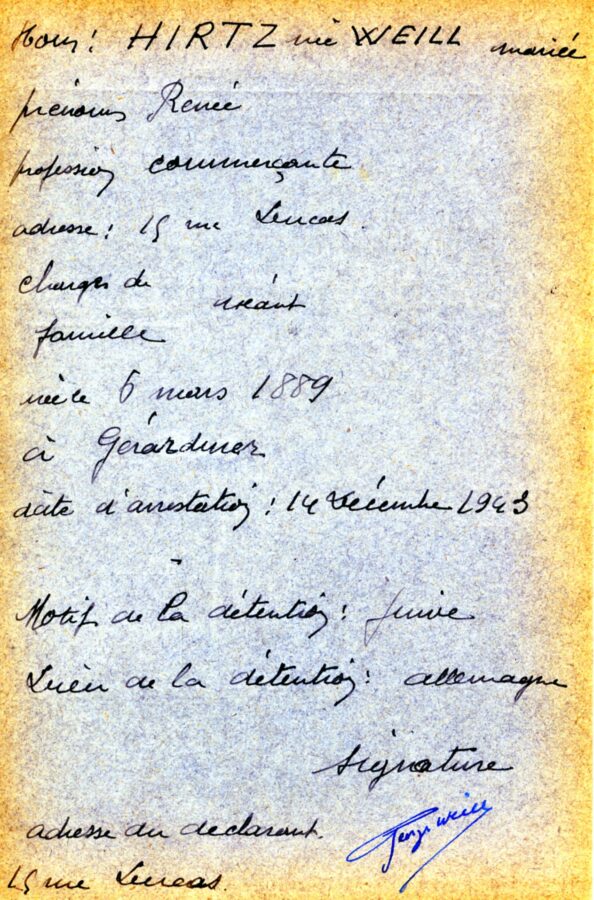 Nom: HIRTZ née WEILL mariée
prénoms Renée
profession commerçante
adresse: 15 rue Lencas.
charges de néant
famille
née le 6 mars 1889
à Gérardmer
date d'arrestation: 14 Décembre 1943
Motif de la détention: Juive
Lieu de la détention: allemagne
signature
Georges Weill
adresse du declarant.
15 rue Lencas.